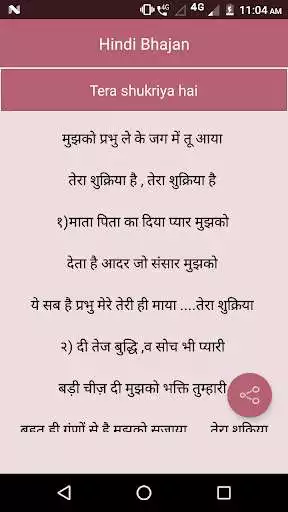 4G
4G
11:04 AM
Hindi Bhajan
Tera shukriya hai
मुझको प्रभु ले के जग में तू आया
तेरा शुक्रिया है , तेरा शुक्रिया है
१)माता पिता का दिया प्यार मुझको
देता है आदर जो संसार मुझको
ये सब है प्रभु मेरे तेरी ही माया ....तेरा शुक्रिया
२) दी तेज बुद्धि ,व सोच भी प्यारी
बड़ी चीज़ दी मुझको भक्ति तुम्हारी
बहुत ही गुंणों से है मुझको सजाया ....तेरा शुक्रिया